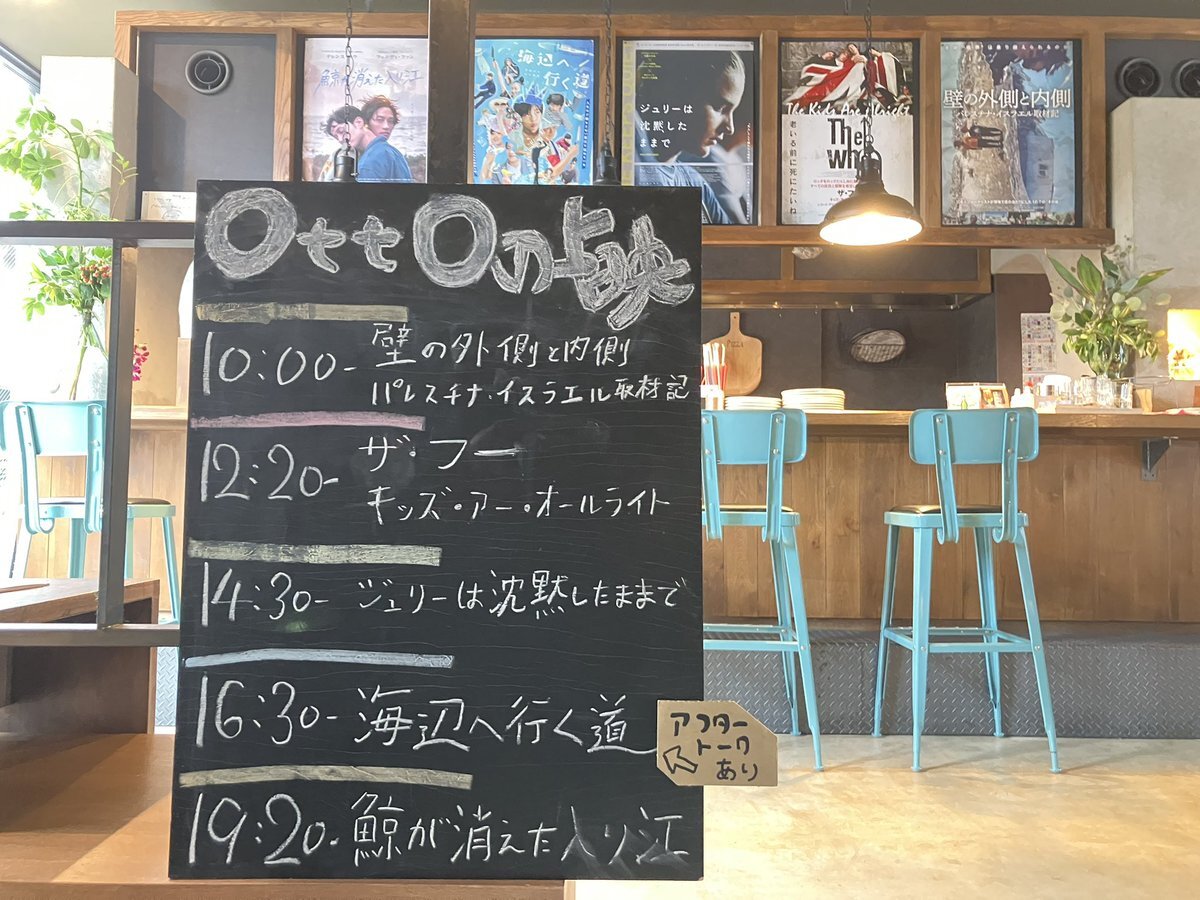 鯨が消えた入り江
海辺へ行く道
ジュリーは
沈黙した
ままで
The Kids Are Alright
老いる前に死にたいね
The
Who
壁の外側と内側
パレスチナ・イスラエル取材記
OttOの上映
10:00-
壁の外側と内側
パレスチナ・イスラエル取材記
12:20-
ザ・フー
キッズ・アー・オールライト
14:30- ジュリーは沈黙したままで
16:30- 海辺へ行く道
アフター
トーク
あり
19:20- 鯨が消えた入り江